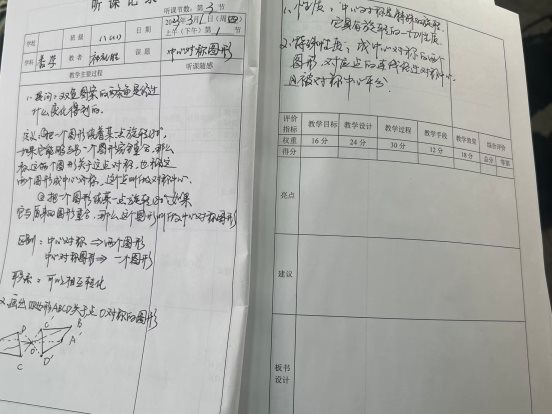 听课记录
听课节数：第3节
学校
班级
八(11)
日期
2023年3月1日(周四)
上午(下午)第1节
学科
数学
教者
课题
中心对称图形
教学主要过程
听课随感
1、提问：双鱼图案的两条鱼是经过
什么变化得到的。
定义：①把一个图形绕着某一点旋转180°，
如果它能够与另一个图形完全重合，那么
称这两个图形关于这点对称，也称这
两个图形成中心对称，这个点叫做对称中心。
②把一个图形绕某一点旋转180°，如果
它与原来的图形重合，那么这个图形叫做中心对称图形
区别：中心对称 ⇒ 两个图形
中心对称图形 ⇒ 一个图形
联系：可以相互转化
2、画出四边形ABCD关于点O对称的图形
1、性质：中心对称是特殊的旋转
它具有旋转的一切性质
2、特殊性质：成中心对称的两个
图形，对应点的连线经过对称中心，
且被对称中心平分
评价指标
教学目标
教学设计
教学过程
教学手段
教学效果
综合评价
权重
16分
24分
30分
12分
18分
总分
等第
得分
亮点
建议
板书设计